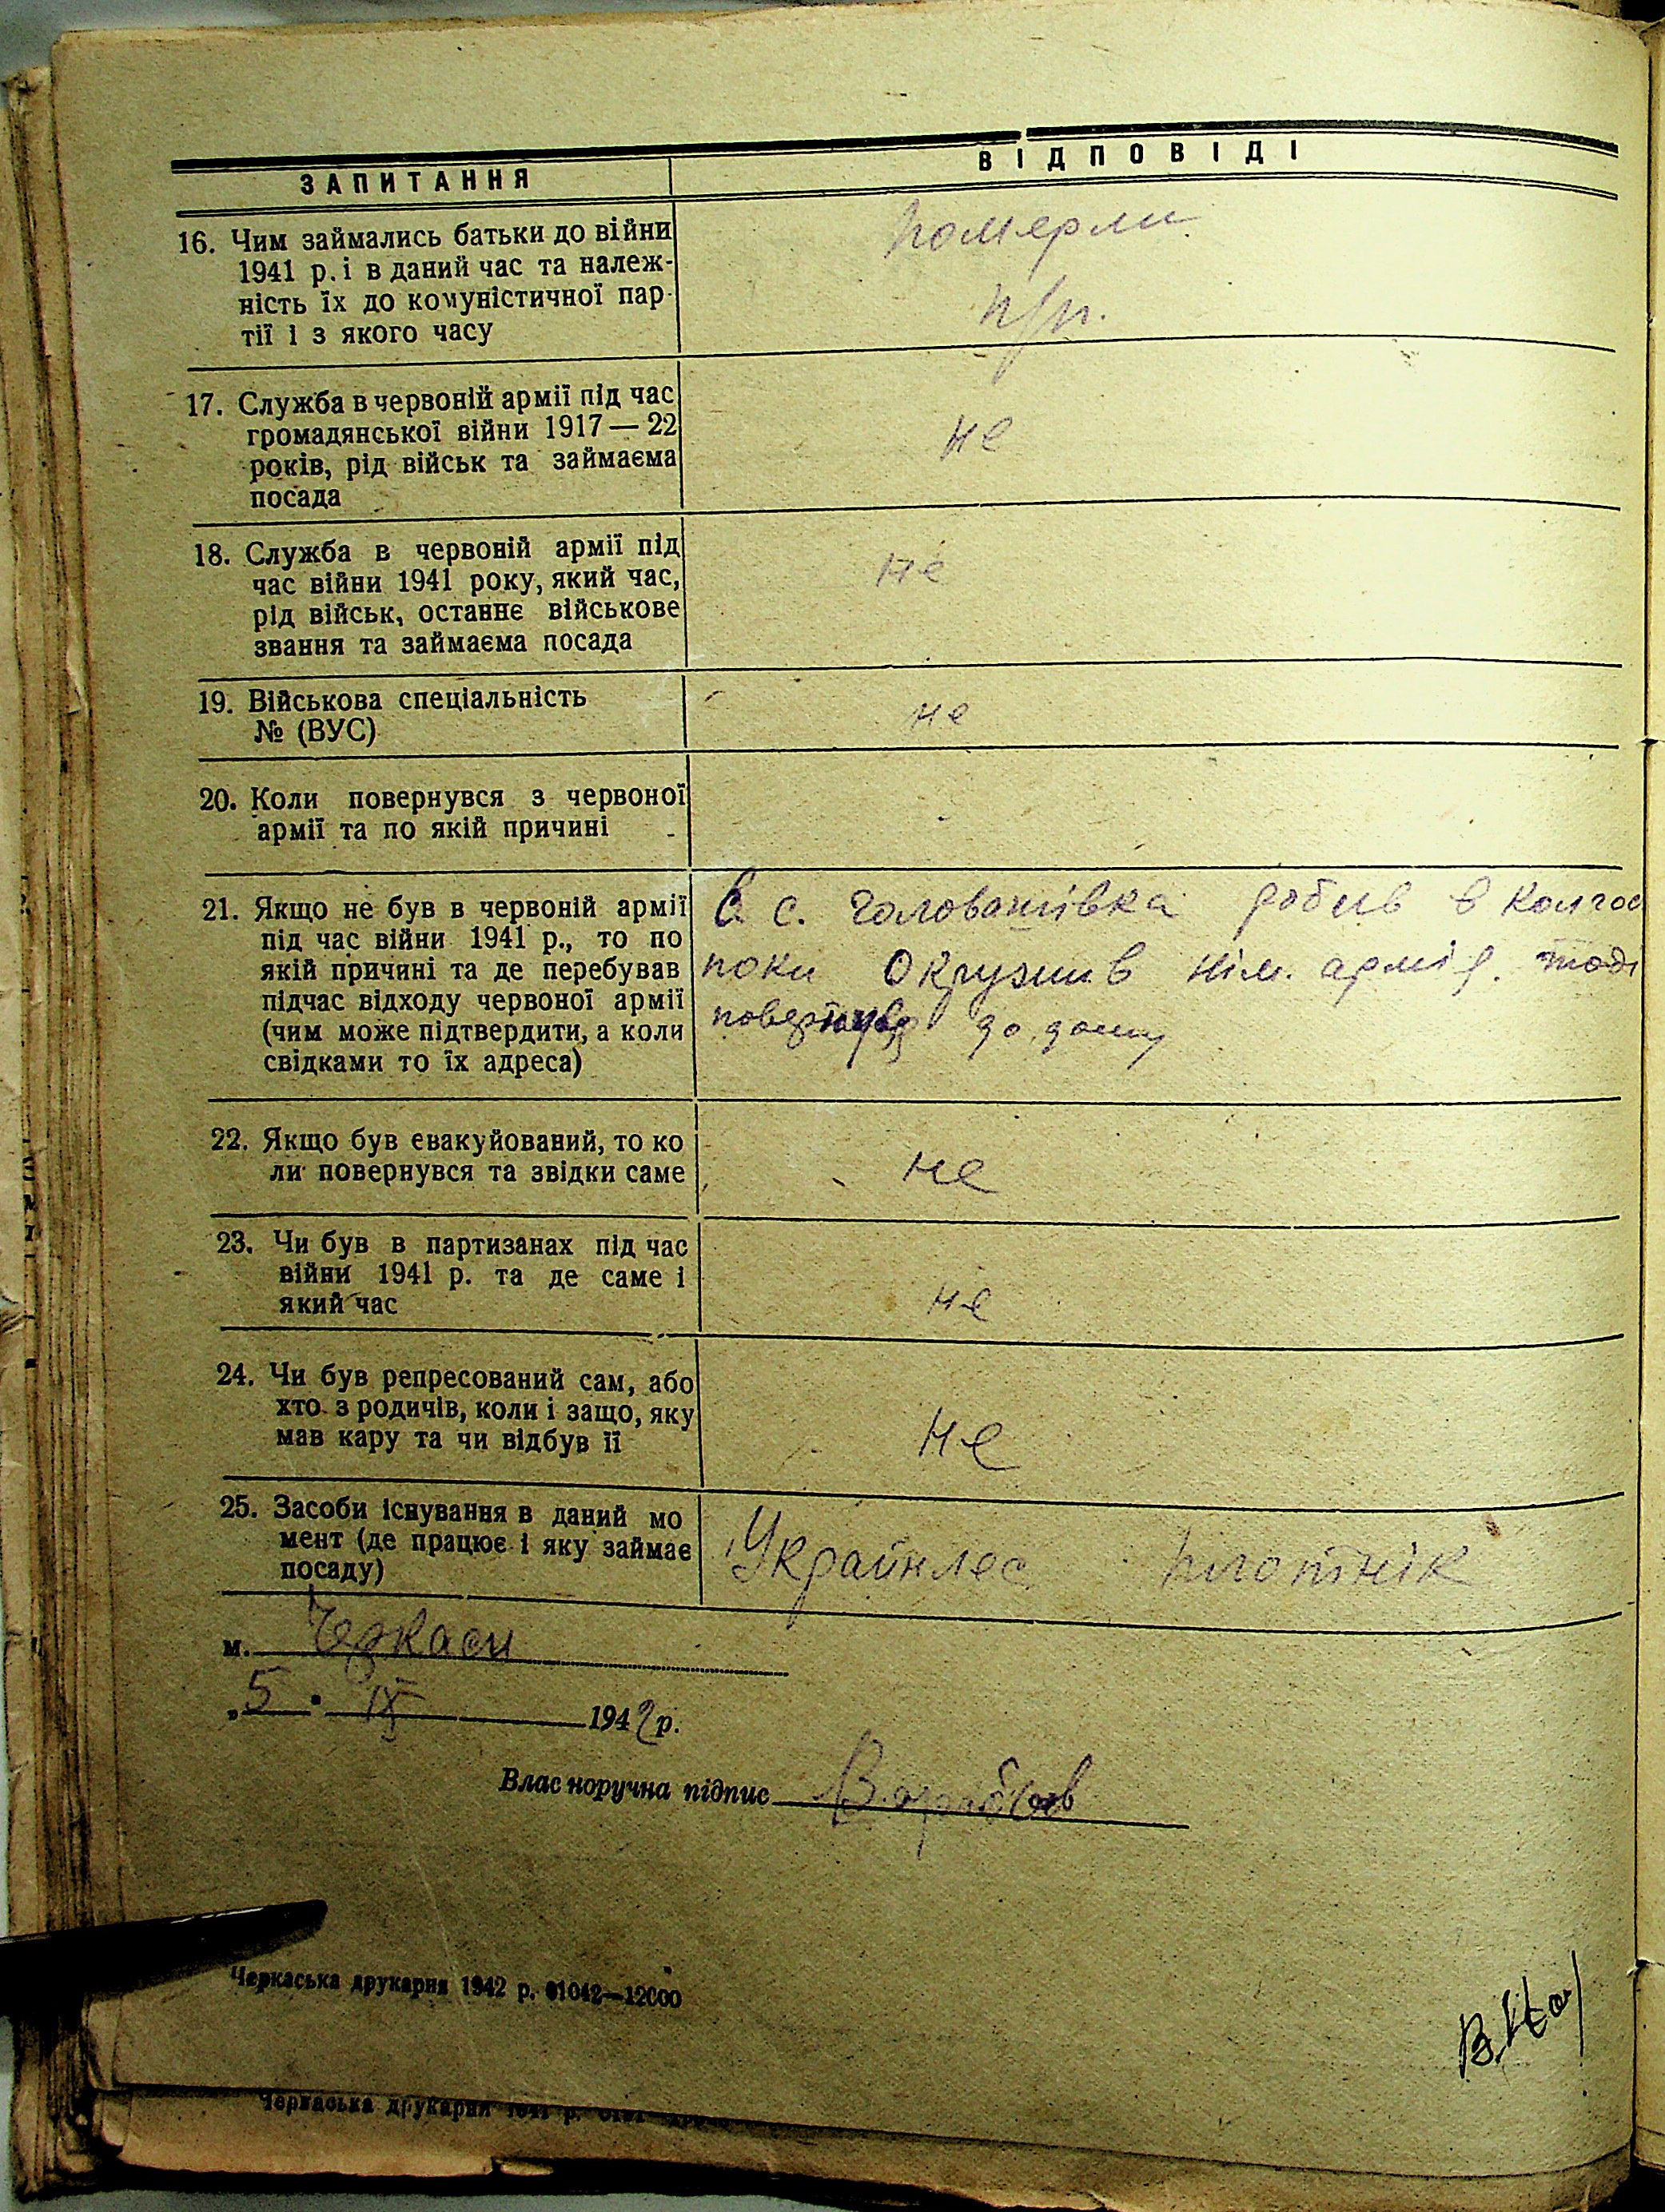 ЗАПИТАННЯ ВІДПОВІДІ
16. Чим займались батьки до війни
1941 р. і в даний час та належ-
ність їх до комуністичної пар-
тії і з якого часу
померли
п/п.
17. Служба в червоній армії під час
громадянської війни 1917—22
років, рід військ та займаєма
посада
не
18. Служба в червоній армії під
час війни 1941 року, який час,
рід військ, останнє військове
звання та займаєма посада
не
19. Військова спеціальність
№ (ВУС)
не
20. Коли повернувся з червоної
армії та по якій причині
21. Якщо не був в червоній армії
під час війни 1941 р., то по
якій причині та де перебував
підчас відходу червоної армії
(чим може підтвердити, а коли
свідками то їх адреса)
В с. робив в колгос
поки окружив нім. армія. тоді
до дому
22. Якщо був евакуйований, то ко
ли повернувся та звідки саме
не
23. Чи був в партизанах під час
війни 1941 р. та де саме і
який час
не
24. Чи був репресований сам, або
хто з родичів, коли і защо, яку
мав кару та чи відбув її
не
25. Засоби існування в даний мо
мент (де працює і яку займає
посаду)
Украйнлес плотнік
м. Черкаси
„5" IX 1942 р.
Власноручна підпис
Черкаська друкарня 1942 р. 01042—12000
Черкаська друкарня